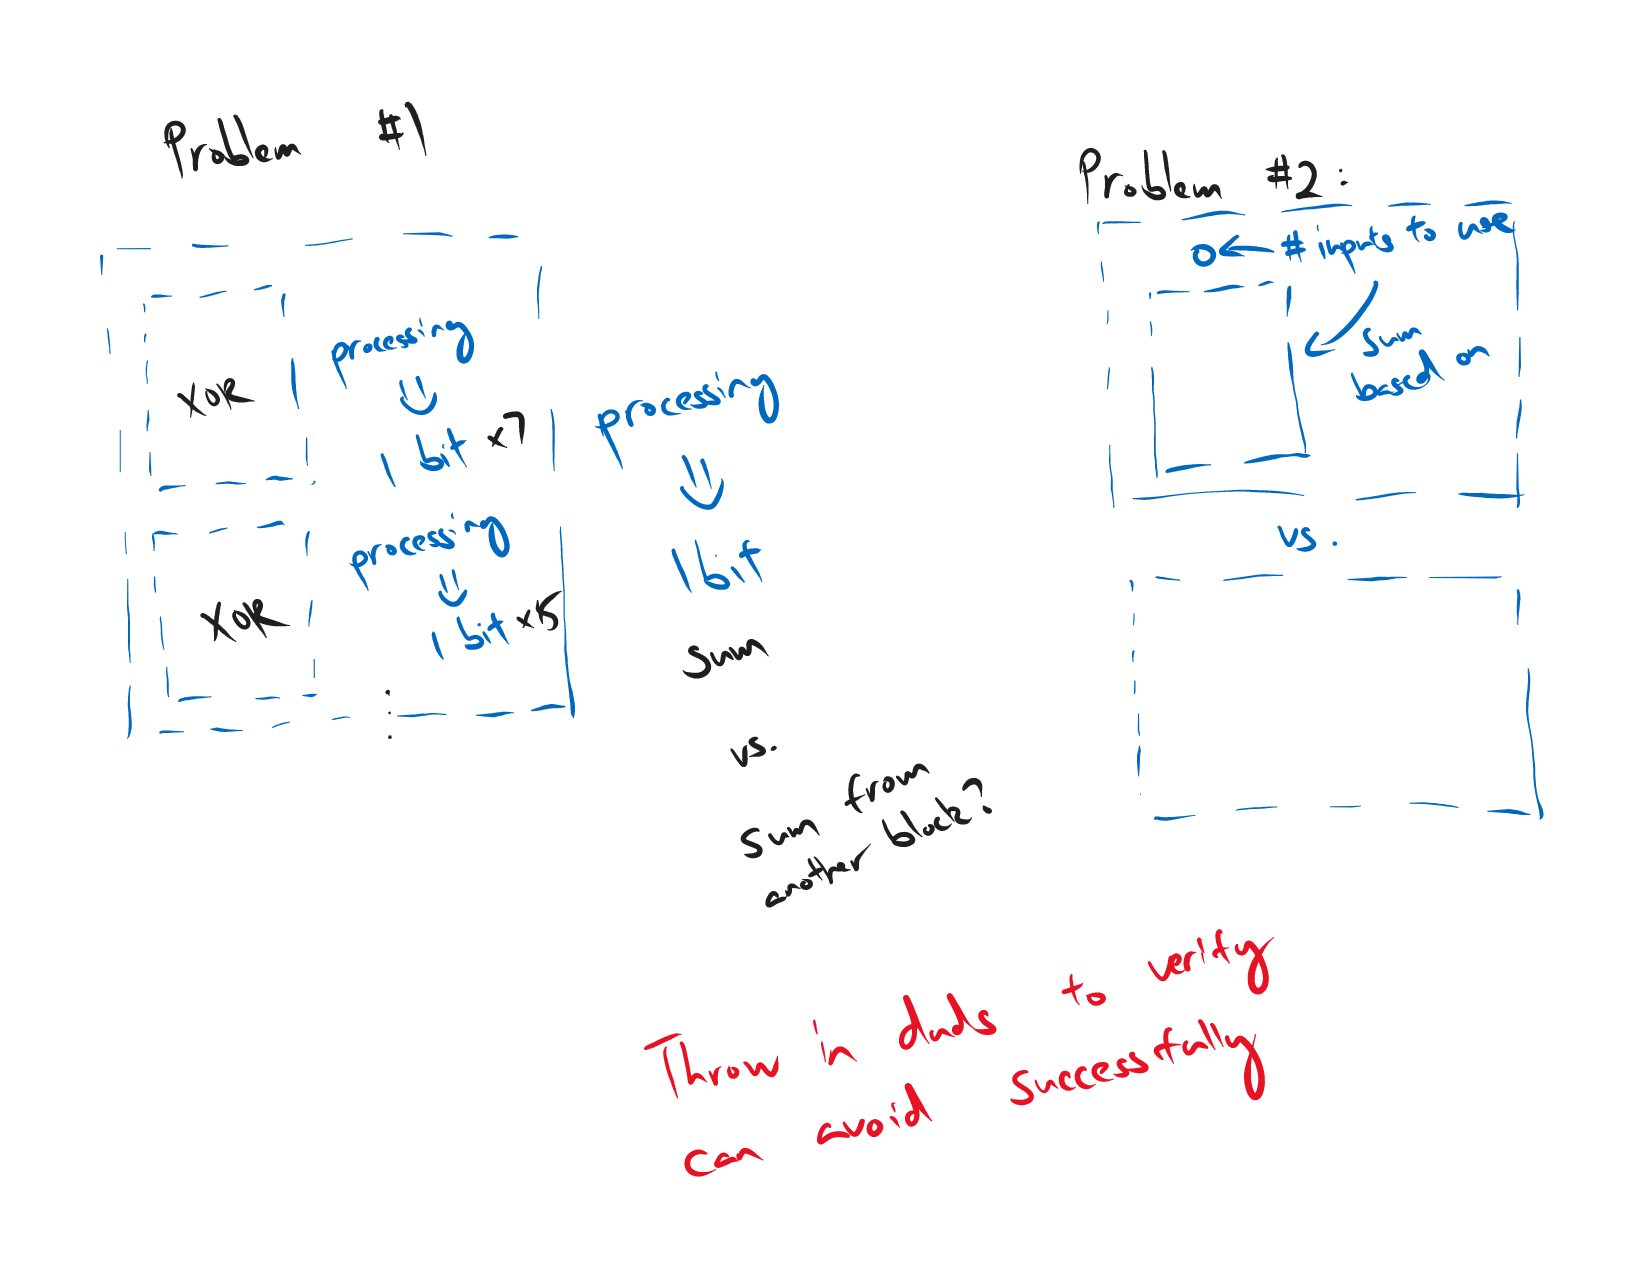 Problem #1
XOR
processing
1 bit x7
XOR
processing
1 bit x15
processing
1 bit
sum
vs.
sum from
another block?
Problem #2:
# inputs to use
sum
based on
vs.
Throw in duds to verify
can avoid successfully